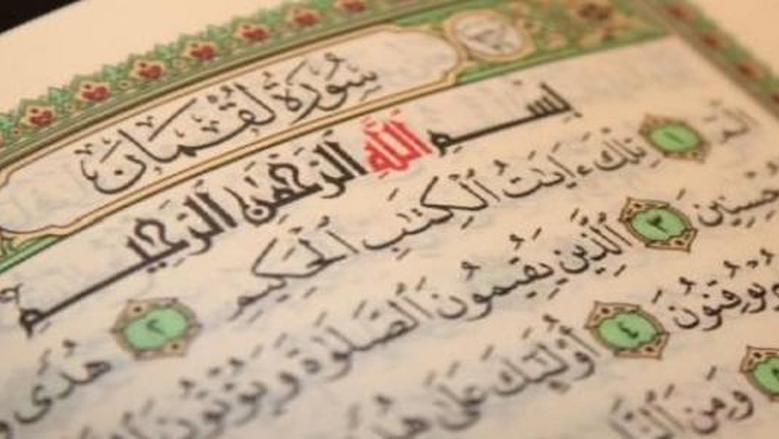 سُورَةُ لُقْمَان
بِسْمِ اللَّهِ الرَّحْمَٰنِ الرَّحِيمِ
الٓمٓ ١ تِلْكَ ءَايَٰتُ ٱلْكِتَٰبِ ٱلْحَكِيمِ ٢ هُدًى
ٱلَّذِينَ يُقِيمُونَ ٱلصَّلَوٰةَ وَيُؤْتُونَ ٣
يُوقِنُونَ ٤ أُو۟لَٰٓئِكَ عَلَىٰ
وَمِنَ